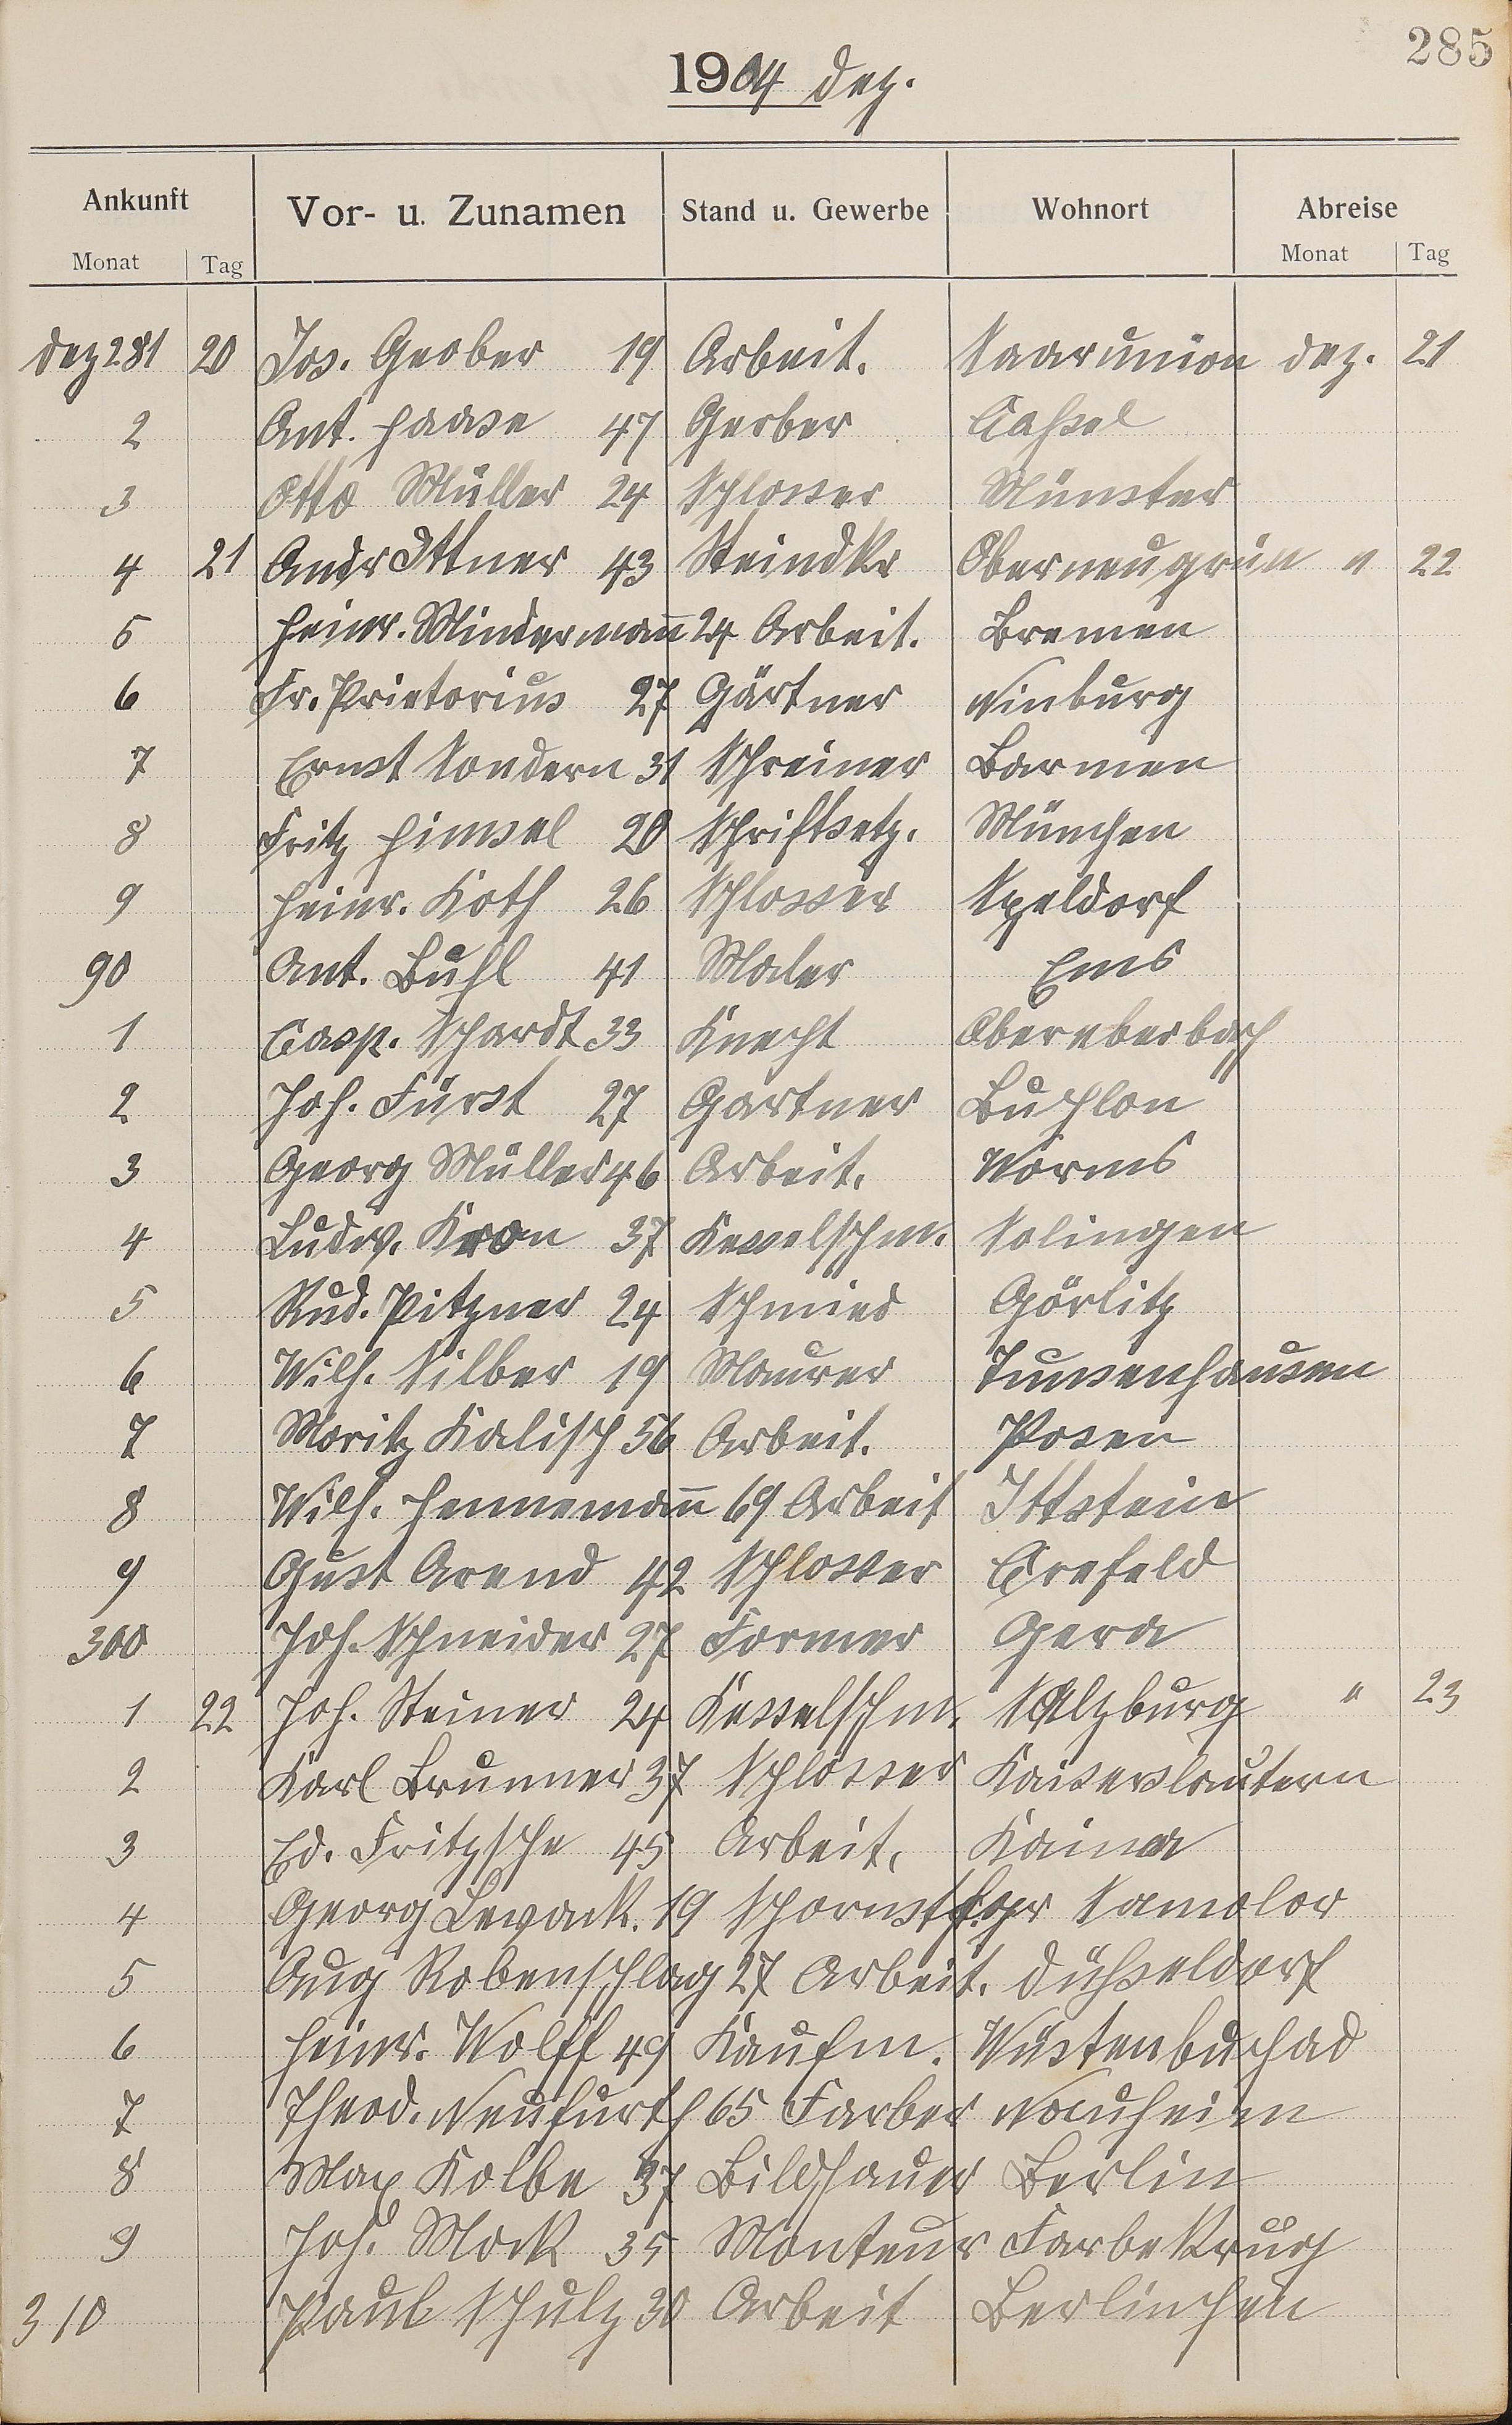 285
1904 Dez.
Ankunft Vor- u. Zunamen Stand u. Gewerbe Wohnort Abreise
Monat Tag Monat Tag
Dez 281 20 Jos. Geober 19 Arbeit. Saarunion Dez. 21
2 Ant. Haase 47 Gerber Caßel
3 Otto Müller 24 Schlosser Münster
4 21 Andr Ittner 43 Steindkr Oberneugrün " 22
5 Heinr. Mindermañ 24 Arbeit. Bremen
6 Fr. Prietorius 27 Gärtner Ninburg
7 Ernst Sondern 31 Schreiner Barmen
8 Fritz Himsel 20 Schriftsetz. München
9 Heinr. Koth 26 Schlosser Speldorf
90 Ant. Buhl 41 Maler Ems
1 Casp. Schardt 33 Knecht Obereberbach
2 Joh. Fürst 27 Gartner Buchlon
3 Georg Müller 46 Arbeit. Worms
4 Ludw. Kron 37 Kesselschm. Solingen
5 Rud. Pitzner 24 Schmied Görlitz
6 Wilh. Silber 19 Maurer Tunsenhausen
7 Moritz Kalisch 56 Arbeit. Posen
8 Wilh. Hennemañ 69 Arbeit Ittstein
9 Gust Arend 42 Schlosser Crefeld
300 Joh. Schneider 27 Former Gera
1 22 Joh. Steiner 24 Kesselschm. Salzburg " 23
2 Karl Brunner 37 Schlosser Kaiserslautern
3 Ed. Fritzsche 45 Arbeit. Kaina
4 Georg Levack. 19 Schornstfgr Samolor
5 Aug Robenschlag 27 Arbeit. Düßeldorf
6 Heinr. Wolff 49 Kaufm. Wüstenbuchad
7 Theod. Neufurth 65 Farber Nauheim
8 Max Kolbe 37 Bildhauer Berlin
9 Joh. Mock 35 Monteur Farbekrug
310 Paul Schulz 30 Arbeit Berlinchen